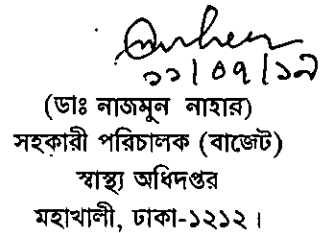 ১১/০৭/১৯
(ডাঃ নাজমুন নাহার)
সহকারী পরিচালক (বাজেট)
স্বাস্থ্য অধিদপ্তর
মহাখালী, ঢাকা-১২১২।